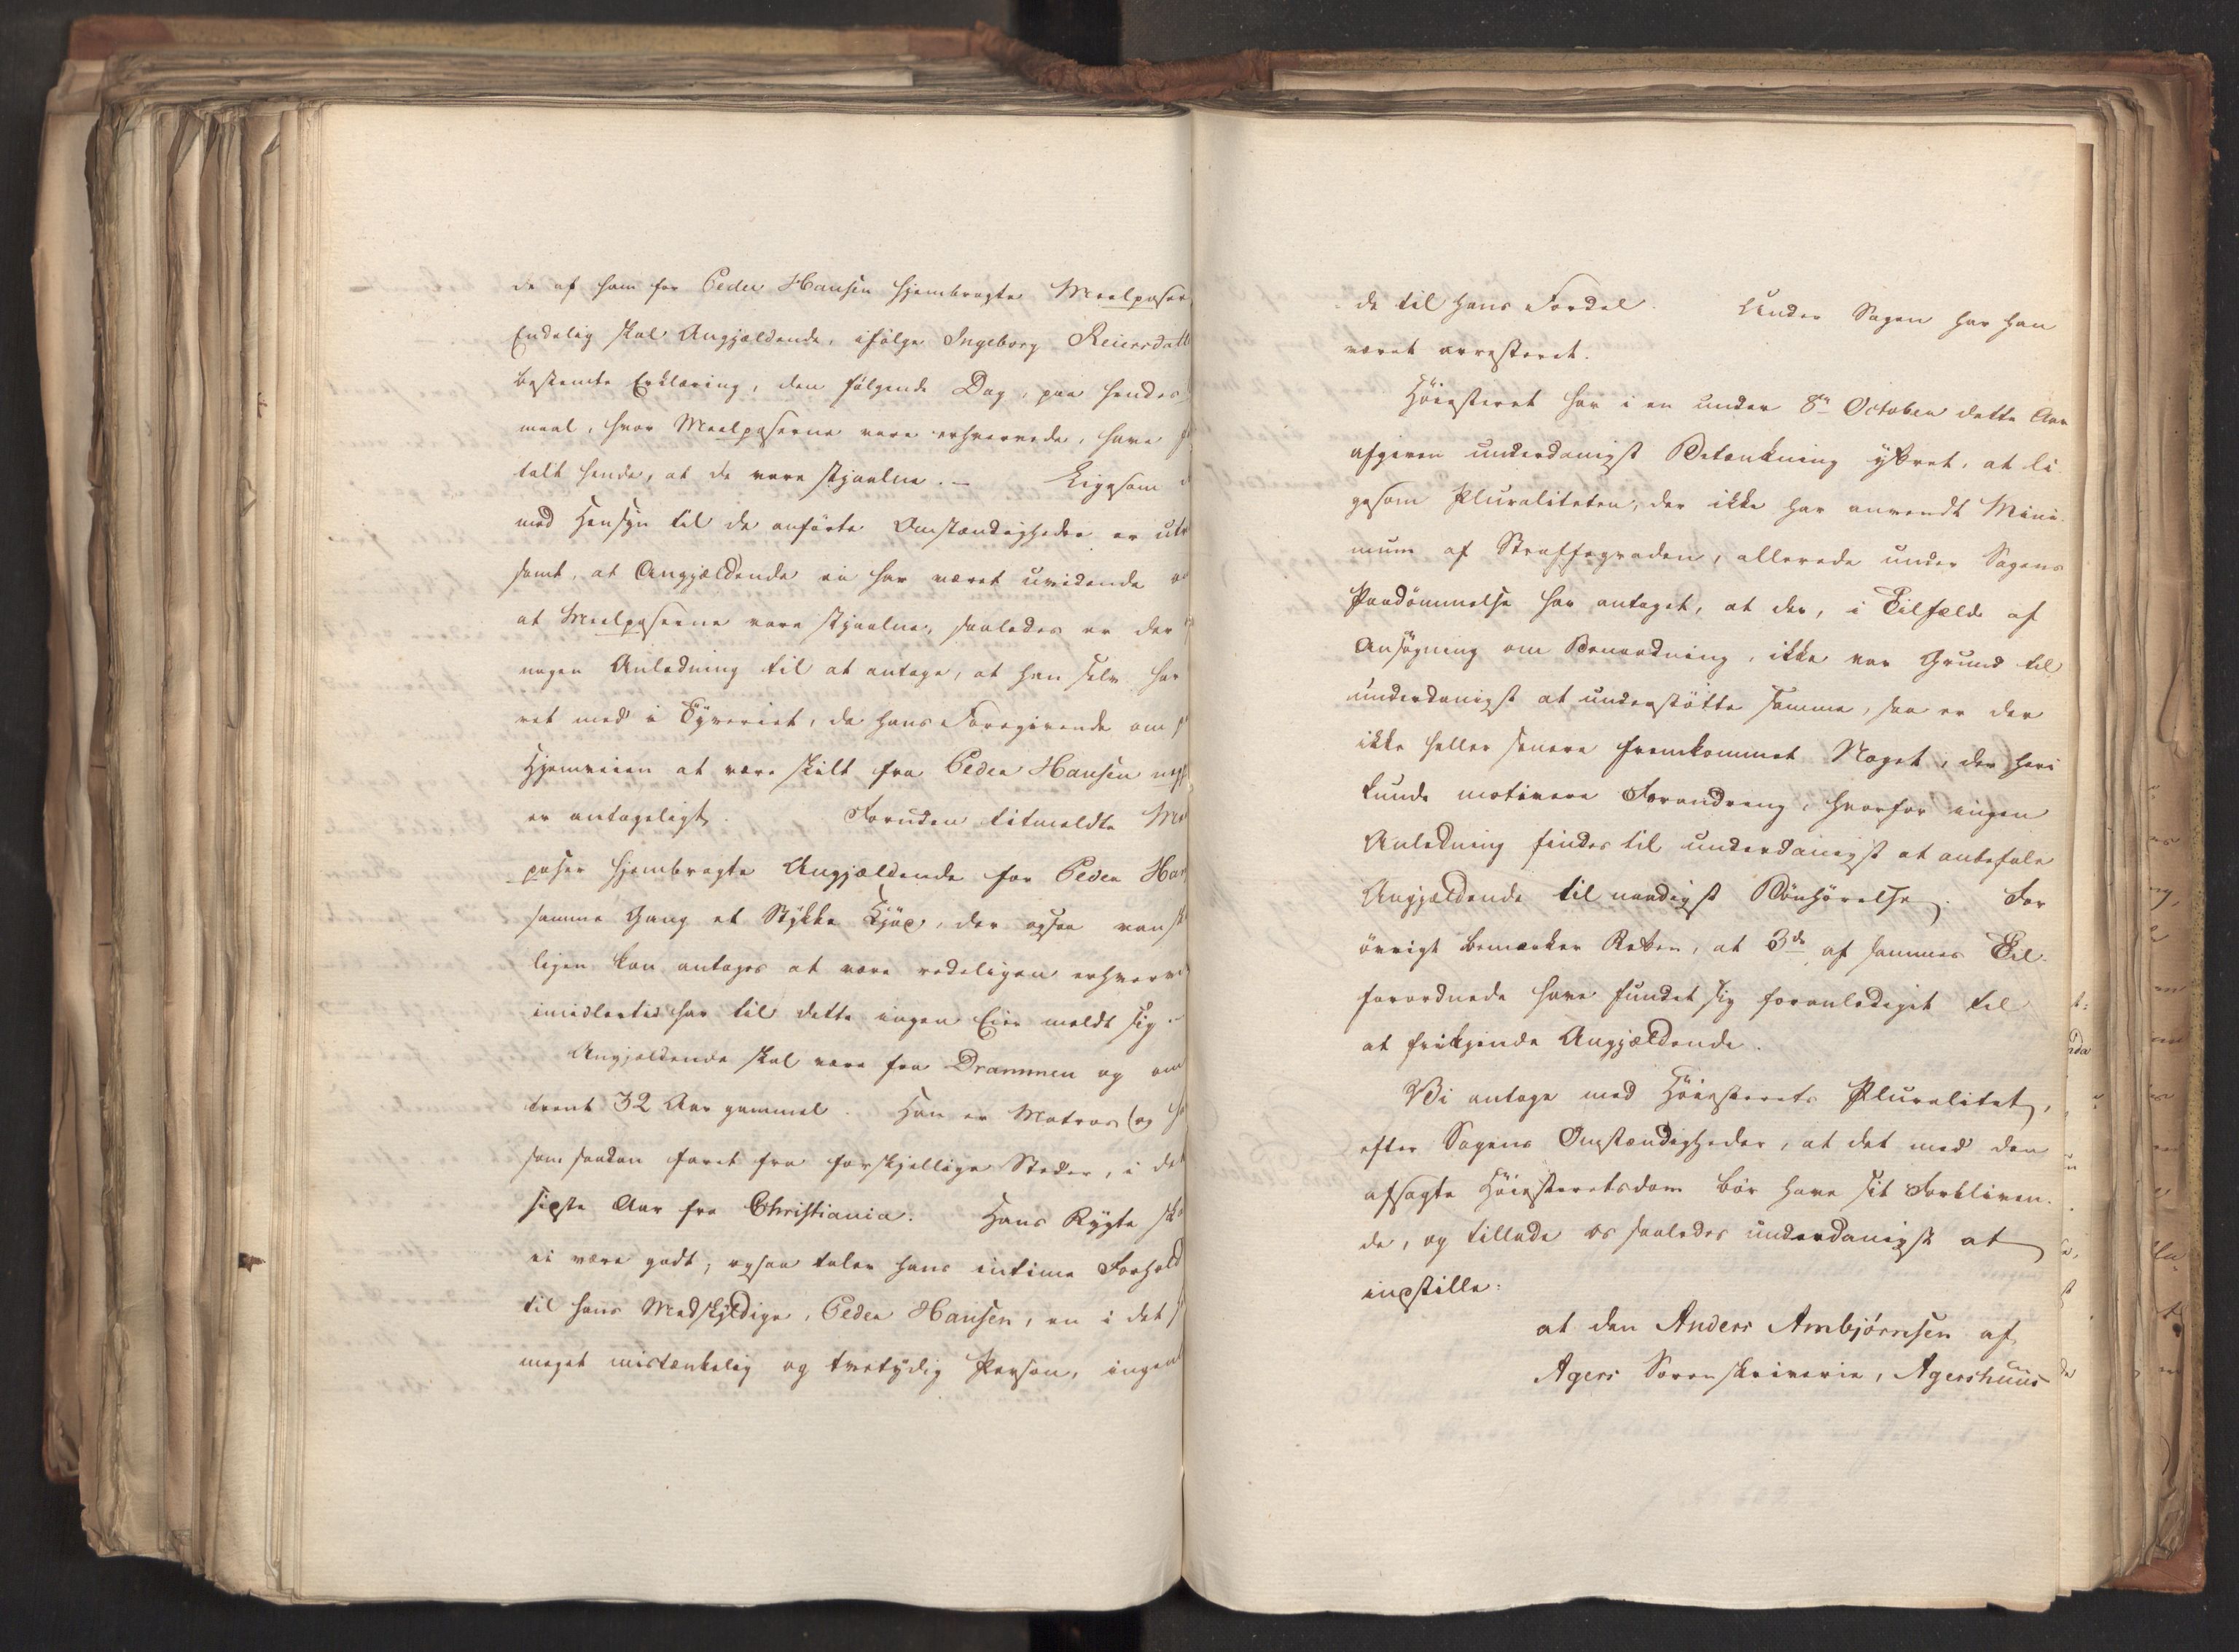 de af ham for Peder Hansen hjembragte Meelposer
Endelig skal Angjældende, ifølge Ingeborg Reiersdatt
bestemte Erklæring, den følgende Dag, paa hendes
maal, hvor Meelposerne vare erhvervede, have
talt hende, at de vare stjaalne. – Ligesom
med Hensyn til de anførte Omstændigheder er
somt, at Angjældende ei har været uvidende
at Meelposerne vare stjaalne, saaledes er der
nogen Anledning til at antage, at han selv har
ret med i Tyveriet, da hans Foregivende om
Hjemveien at være skilt fra Peder Hansen
er antageligt. Foruden titmeldte
poser hjembragte Angjældende for Peder Han
samme Gang et Stykke Kjød, der ogsaa vanske
ligen kan antages at være redeligen erhverve
imidlertid har til dette ingen Eier meldt sig. –
Angjældende skal være fra Drammen og om
trent 32 Aar gammel. Han er Matros (og
som saadan faret fra forskjellige Steder, i det
sidste Aar fra Christiania. Hans Rygte ska
ei være godt; ogsaa taler hans intime Forhold
til hans Medskyldige, Peder Hansen, en i det
meget mistænkelig og tvetydig Person, ingen
de til hans Fordel. Under Sagen har han
været arresteret.
Höiesteret har i en under 8de October dette Aar
afgiven underdanigst Betænkning yttret, at li-
gesom Pluraliteten, der ikke har anvendt Mini-
mum af Straffegraden, allerede under Sagens
Paadömmelse har antaget, at der, i Tilfælde af
Ansögning om Benaadning, ikke var Grund til
underdanigst at understötte samme, saa er der
ikke heller senere fremkommet Noget, der heri
kunde motivere Forandring, hvorfor ingen
Anledning findes til underdanigst at anbefale
Angjældende til naadigst Bönhörelse. For
övrigt bemærker Retten, at 3de af sammes Til-
forordnede have fundet sig foranlediget til
at frikjende Angjældende.
Vi antage med Höiesterets Pluralitet,
efter Sagens Omstændigheder, at det med den
afsagte Höiesteretsdom bör have sit Forbliven-
de, og tillade os saaledes underdanigst at
indstille:
at den Anders Ambjörnsen af
Agers Sorenskriverie, Agershuus